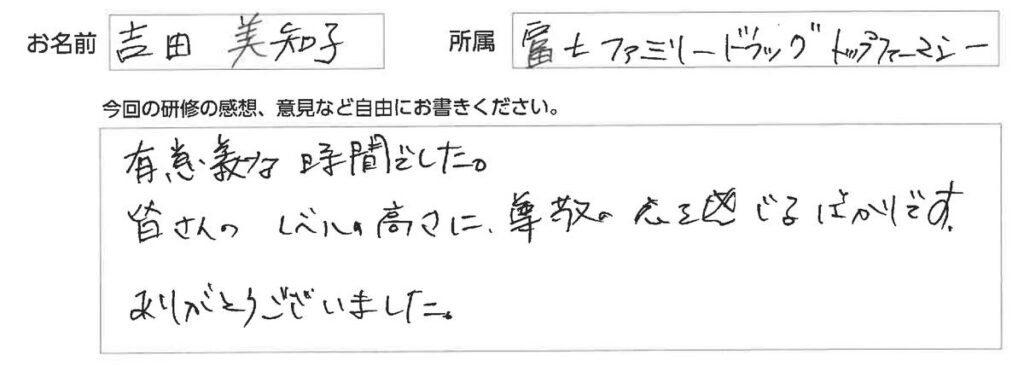 お名前 吉田 美知子 所属 富士ファミリードラッグ トップファーマシー
今回の研修の感想、意見など自由にお書きください。
有意義な時間でした。
皆さんの レベルの高さに、尊敬の念を感じるばかりです。
ありがとうございました。